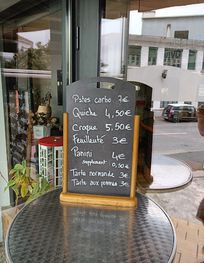 Pâtes carbo 7€
Quiche 4,50€
Croque 5,50€
Feuilleté 3€
Panini 4€
supplément 0,50€
Tarte normande 3€
Tarte aux pommes 3€